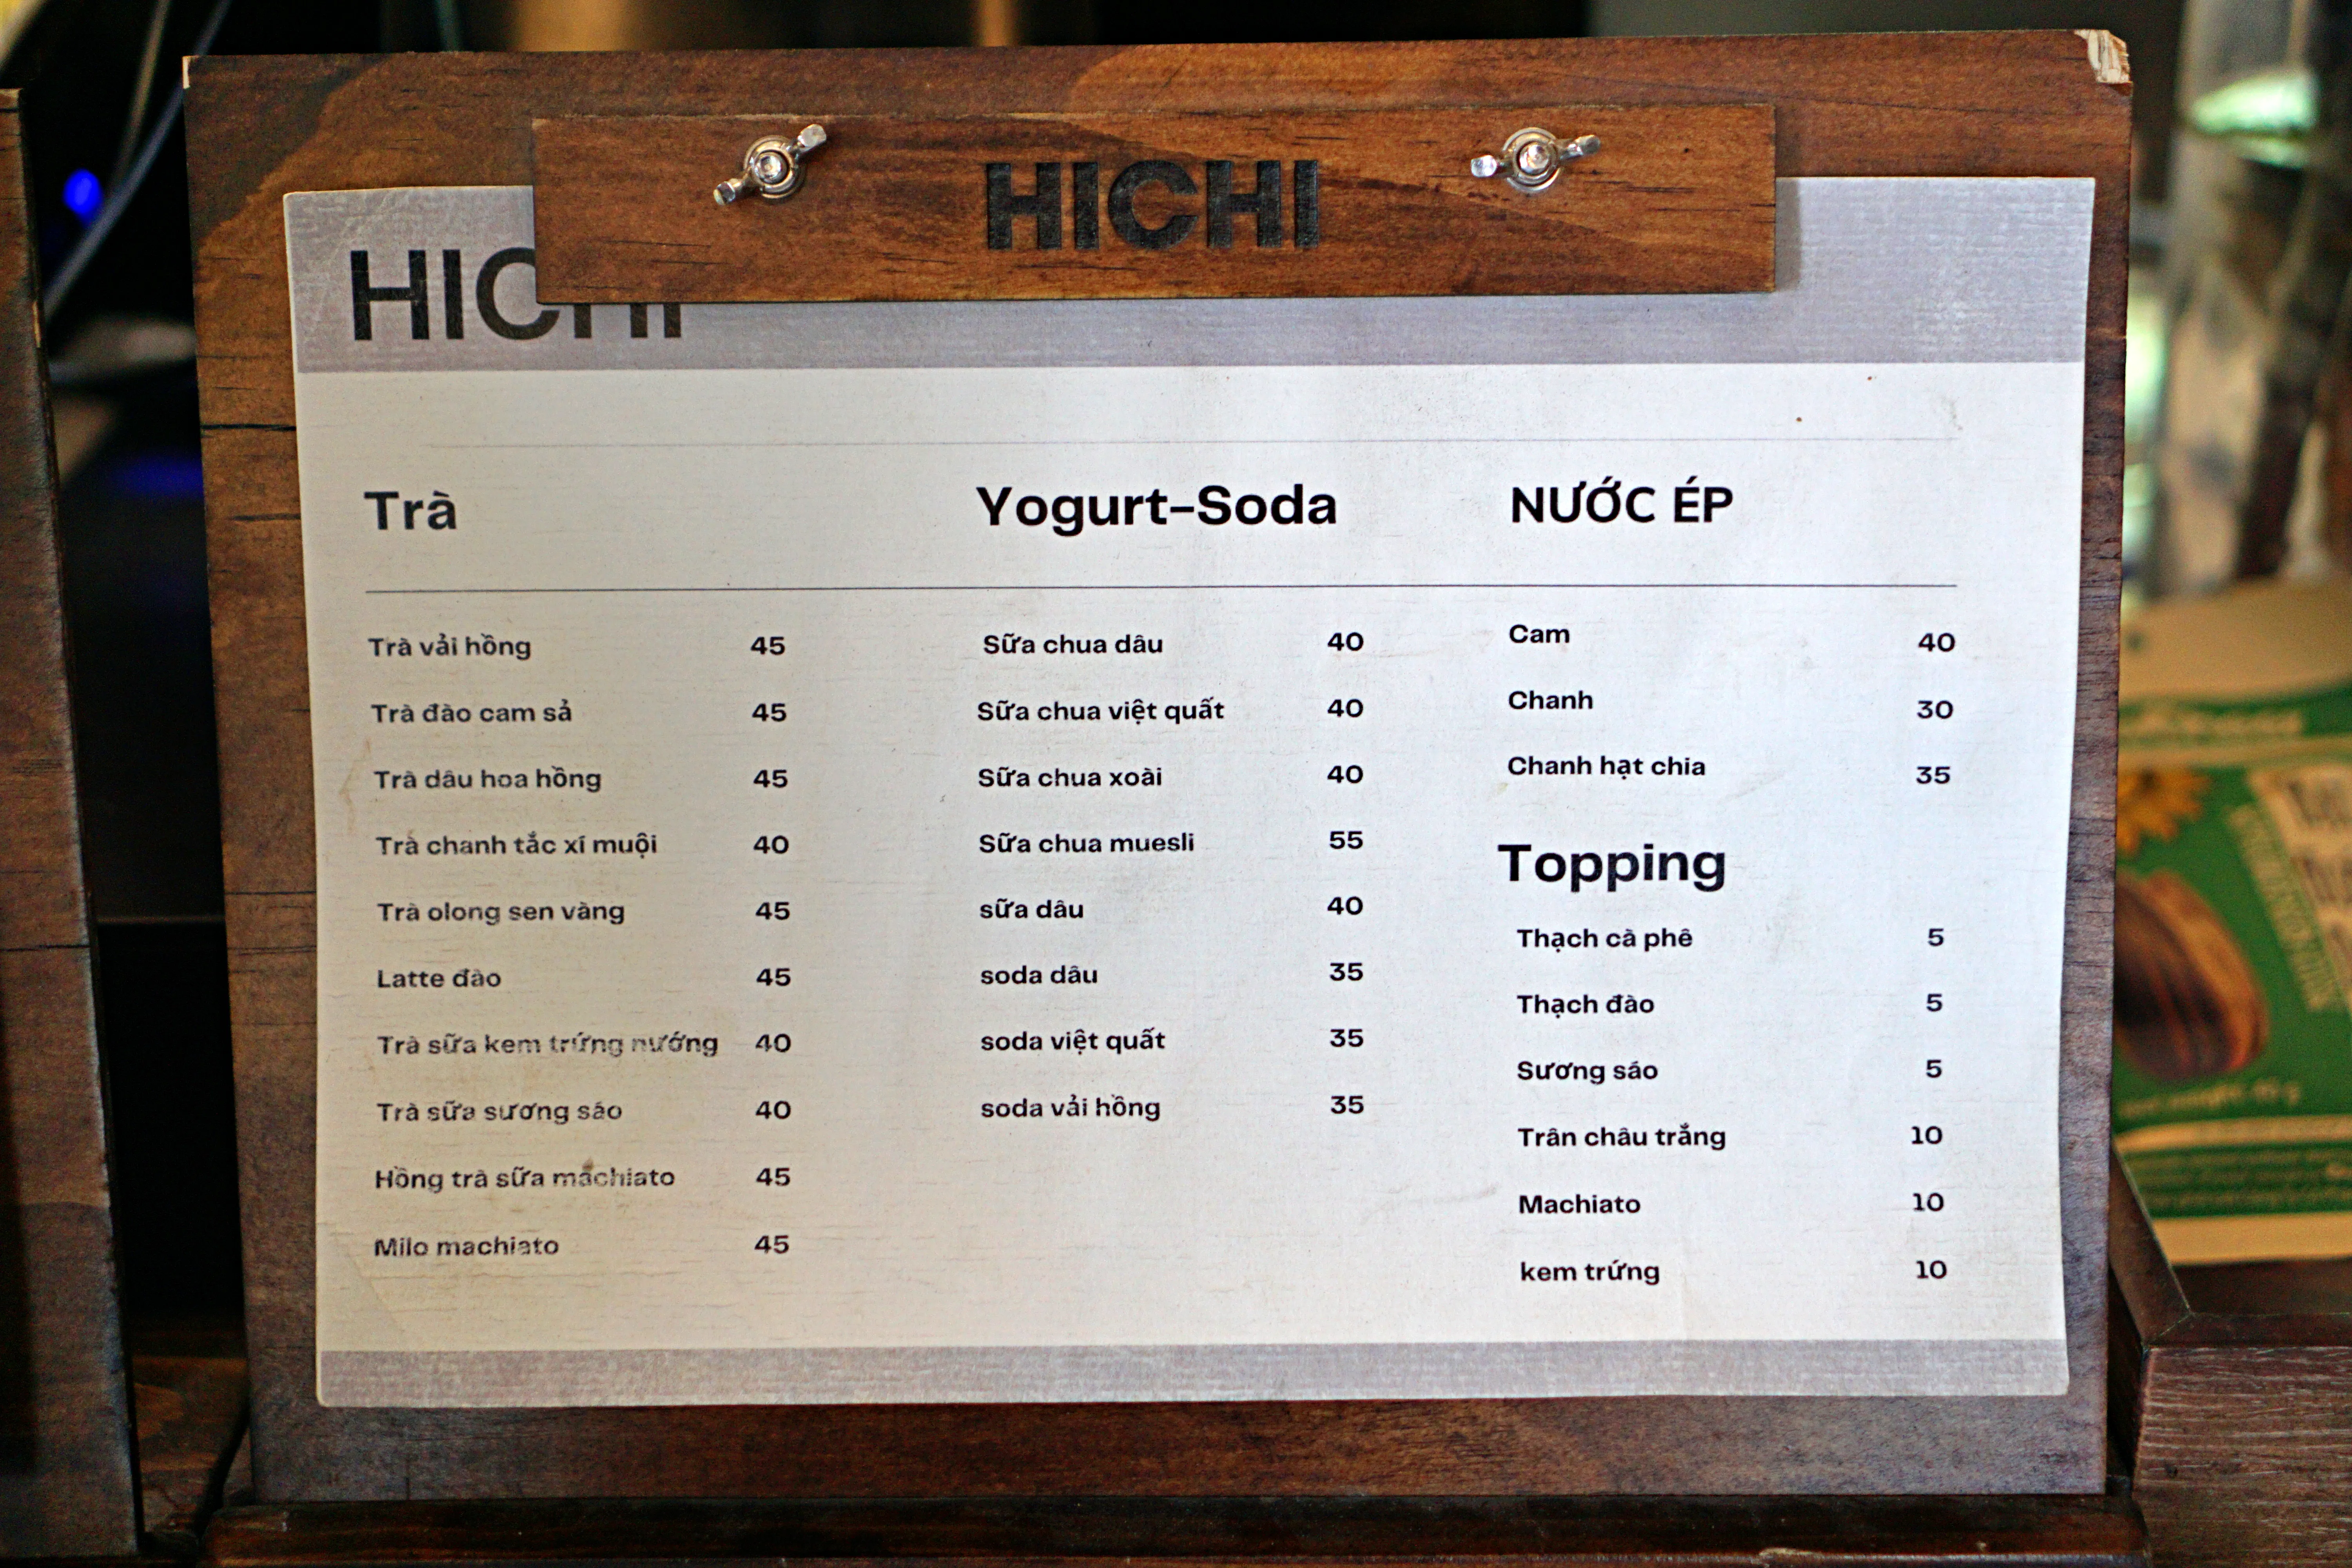 HICHI
HICHI
Trà
Trà vải hồng 45
Trà đào cam sả 45
Trà dâu hoa hồng 45
Trà chanh tắc xí muội 40
Trà olong sen vàng 45
Latte đào 45
Trà sữa kem trứng nướng 40
Trà sữa sương sáo 40
Hồng trà sữa machiato 45
Milo machiato 45
Yogurt-Soda
Sữa chua dâu 40
Sữa chua việt quất 40
Sữa chua xoài 40
Sữa chua muesli 55
sữa dâu 40
soda dâu 35
soda việt quất 35
soda vải hồng 35
NƯỚC ÉP
Cam 40
Chanh 30
Chanh hạt chia 35
Topping
Thạch cà phê 5
Thạch đào 5
Sương sáo 5
Trân châu trắng 10
Machiato 10
kem trứng 10